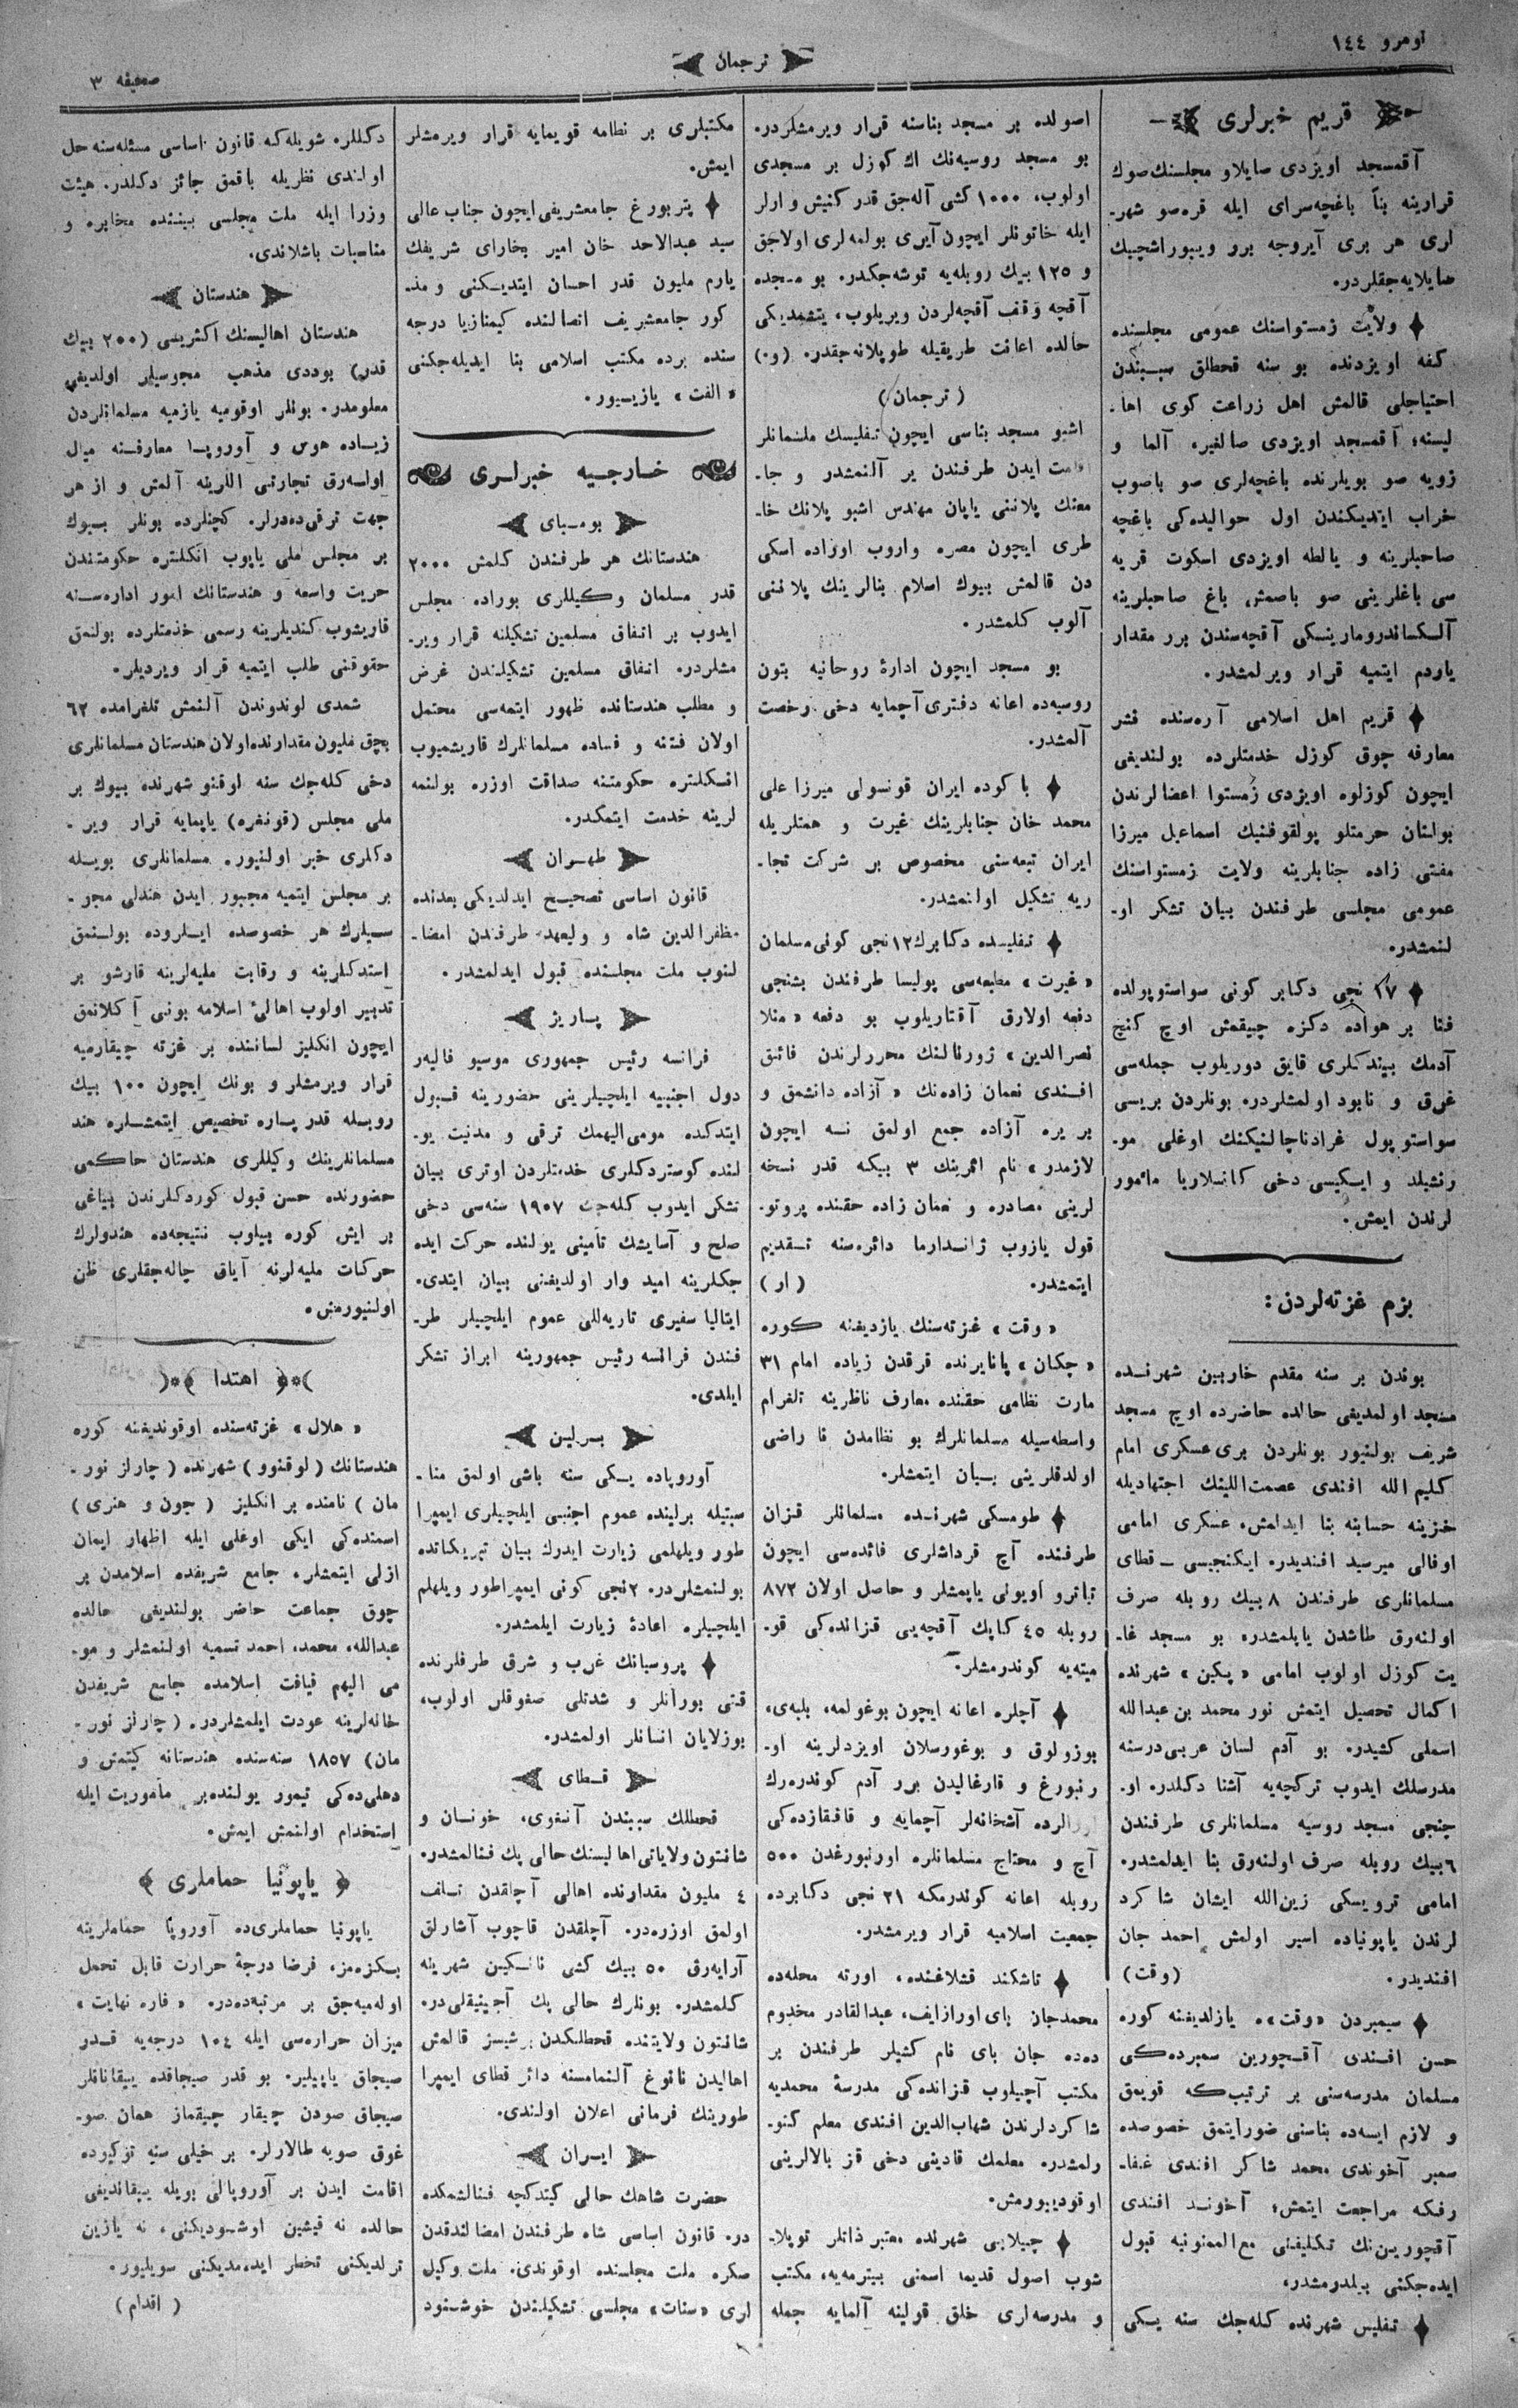 نومرو ١٤٤
ترجمان
صحیفه ٣
قریم خبرلری
آقمسجد اویزدی صایلاو مجلسنك صوك
قرارینه بنأ باغچه‌سرای ایله قره‌صو شهر-
لری هر بری آیروجه برو ویبوراشچیك
صایلایه‌جقلردر.
ولایت زمستواسنك عمومی مجلسنده
كفه اویزدنده بو سنه قحطلق سببندن
احتیاجلی قالمش اهل زراعت كوی اها-
لیسنه؛ آقمسجد اویزدی صالغیر، آلما و
زویه صو بویلرنده باغچه‌لری صو باصوب
خراب ایتدیكندن اول حوالیده‌كی باغچه
صاحبلرینه و یالطه اویزدی اسكوت قریه
سی باغلرینی صو باصمش باغ صاحبلرینه
آلكساندرومارینسكی آقچه‌سندن برر مقدار
یاردم ایتمیه قرار ویرلمشدر.
قریم اهل اسلامی آره‌سنده نشر
معارفه چوق كوزل خدمتلرده بولندیغی
ایچون كوزلوه اویزدی زمستوا اعضالرندن
بولنان حرمتلو پولقوفنیك اسماعیل میرزا
مفتی زاده جنابلرینه ولایت زمستواسنك
عمومی مجلسی طرفندن بیان تشكر او-
لنمشدر.
١٧ نجی دكابر كونی سواستوپولده
فنا بر هواده دكزه چیقمش اوچ كنج
آدمك بیندكلری قایق دوریلوب جمله‌سی
غرق و نابود اولمشلردر. بونلردن بریسی
سواستوپول غرادناچالنیكنك اوغلی مو-
رنشیلد و ایسكیسی دخی كانسلاریا مائمور
لرندن ایمش.
بزم غزته‌لردن:
بوندن بر سنه مقدم خاربین شهرنده
مسجد اولمدیغی حالده حاضرده اوچ مسجد
شریف بولنیور بونلردن بری عسكری امام
كلیم الله افندی عصمت‌اللینك اجتهادیله
خزینه حسابنه بنا ایدلمش، عسكری امامی
اوفالی میرسید افندیدر. ایكنجیسی ـ قطای
مسلمانلری طرفندن ٨ بیك روبله صرف
اولنه‌رق طاشدن یاپلمشدر. بو مسجد غا-
یت كوزل اولوب امامی «پكین» شهرنده
اكمال تحصیل ایتمش نور محمد بن عبدالله
اسملی كشیدر. بو آدم لسان عربی‌درسنه
مدرسلك ایدوب تركچه‌یه آشنا دكلدر. او-
چنجی مسجد روسیه مسلمانلری طرفندن
٦ بیك روبله صرف اولنه‌رق بنا ایدلمشدر.
امامی ترویسكی زین‌الله ایشان شاكرد
لرندن یاپونیاده اسیر اولمش احمد جان
افندیدر. (وقت)
سیمبردن «وقت»ه یازلدیغنه كوره
حسن افندی آقچورین سمبرده‌كی
مسلمان مدرسه‌سنی بر ترتیب‌كه قویمق
و لازم ایسه‌ده بناسنی ضورایتمق خصوصده
سمبر آخوندی محمد شاكر افندی غفا-
رفكه مراجعت ایتمش؛ آخوند افندی
آقچورین‌نك تكلیفنی مع‌الممنونیه قبول
ایده‌جكنی بیلدرمشدر.
تفلیس شهرنده كله‌جك سنه یسكی
اصولده بر مسجد بناسنه قرار ویرمشلردر.
بو مسجد روسیه‌نك اك كوزل بر مسجدی
اولوب، ١٠٠٠ كشی آله‌جق قدر كنیش و ارلر
ایله خاتونلر ایچون آیری بولمه‌لری اولاجق
و ١٢٥ بیك روبله‌یه توشه‌جكدر. بو مسجده
آقچه وقف آقچه‌لردن ویریلوب، یتشمدیكی
حالده اعانت طریقیله طوپلانه‌جقدر. (و.)
(ترجمان)
اشبو مسجد بناسی ایچون تفلیسك ملسمانلر
اقامت ایدن طرفندن یر آلنمشدر و جا-
معنك پلاننی یاپان مهندس اشبو پلانك خا-
طری ایچون مصره واروب اوراده اسكی
دن قالمش بیوك اسلام بنالرینك پلاننی
آلوب كلمشدر.
بو مسجد ایچون ادارهٔ روحانیه بتون
روسیه‌ده اعانه دفتری آچمایه دخی رخصت
آلمشدر.
باكوده ایران قونسولی میرزا علی
محمد خان جنابلرینك غیرت و همتلریله
ایران تبعه‌سنی مخصوص بر شركت تجا-
ریه تشكیل اولنمشدر.
تفلیسده دكابرك ١٢ نجی كونی مسلمان
«غیرت» مطبعه‌سی پولیسا طرفندن بشنجی
دفعه اولارق آقتاریلوب بو دفعه «منلا
نصرالدین» ژورنالنك محررلرندن فائق
افندی نعمان زاده‌نك «آزاده دانشمق و
بریره آزاده جمع اولمق نسه ایچون
لازمدر» نام اثرینك ٣ بیكه قدر نسخه
لرینی مصادره و نعمان زاده حقنده پروتو-
قول یازوب ژاندارما دائره‌سنه تقدیم
ایتمشدر. (ار)
«وقت» غزته‌سنك یازدیغنه كوره
«چكان» پانایرنده قرقدن زیاده امام ٣١
مارت نظامی حقنده معارف ناظرینه تلغرام
واسطه‌سیله مسلمانلرك بو نظامدن نا راضی
اولدقلرینی بیان ایتمشلر.
طومسكی شهرنده مسلمانلر قزان
طرفنده آچ قرداشلری فائده‌سی ایچون
تیاترو اویونی یاپمشلر و حاصل اولان ٨٧٢
روبله ٤٥ كاپك آقچه‌یی قزانده‌كی قو-
میته‌یه كوندرمشلر.
آچلره اعانه ایچون بوغولمه، بلبه‌ی،
بوزولوق و بوغورسلان اویزدلرینه او-
رنبورغ و قارغالیدن برر آدم كوندره‌رك
اورالرده آشخانه‌لر آچمایه و قافقازده‌كی
آچ و محتاج مسلمانلره اورنبورغدن ٥٠٠
روبله اعانه كوندرمكه ٢١ نجی دكابرده
جمعیت اسلامیه قرار ویرمشدر.
تاشكند قشلاغنده، اورته محله‌ده
محمدجان بای اورازایف، عبدالقادر مخدوم
دده جان بای نام كشیلر طرفندن بر
مكتب آچیلوب قزانده‌كی مدرسهٔ محمدیه
شاكردلرندن شهاب‌الدین افندی معلم كتو-
رلمشدر. معلمك قادینی دخی قز بالالرینی
اوقودییورمش.
چیلابی شهرنده معتبر ذاتلر توپلا-
شوب اصول قدیما اسمنی بیترمه‌یه، مكتب
و مدرسه‌لری خلق قولینه آلمایه جمله
مكتبلری بر نظامه قویمایه قرار ویرمشلر
ایمش.
پتربورغ جامعشریفی ایچون جناب عالی
سید عبدالاحد خان امیر بخارای شریفك
یارم ملیون قدر احسان ایتدیكنی و مذ-
كور جامعشریف اتصالنده كیمنازیا درجه
سنده برده مكتب اسلامی بنا ایدیله‌جكنی
«الفت» یازییور.
خارجیه خبرلری
بومبای
هندستانك هر طرفندن كلمش ٢٠٠٠
قدر مسلمان وكیللری بوراده مجلس
ایدوب بر اتفاق مسلمین تشكیلنه قرار ویر-
مشلردر. اتفاق مسلمین تشكیلندن غرض
و مطلب هندستانده ظهور ایتمه‌سی محتمل
اولان فتنه و فساده مسلمانلرك قاریشمیوب
انكلتره حكومتنه صداقت اوزره بولنمه
لرینه خدمت ایتمكدر.
طهران
قانون اساسی تصحیح ایدلدیكی بعدنده
مظفرالدین شاه و ولیعهد طرفندن امضا-
لنوب ملت مجلسنده قبول ایدلمشدر.
پاریز
فرانسه رئیس جمهوری موسیو فالیەر
دول اجنبیه ایلچیلرینی حضورینه قبول
ایتدكده مومی‌الیهمك ترقی و مدنیت یو-
لنده كوستردكلری خدمتلردن اوتری بیان
تشكر ایدوب كله‌جك ١٩٠٧ سنه‌سی دخی
صلح و آسایشك تأمینی یولنده حركت ایده
جكلرینه امید وار اولدیغنی بیان ایتدی.
ایتالیا سفیری تاریه‌للی عموم ایلچیلر طر-
فندن فرانسه رئیس جمهورینه ابراز تشكر
ایلدی.
برلین
آوروپاده یكی سنه باشی اولمق منا-
سبتیله برلینده عموم اجنبی ایلچیلری ایمپرا
طور ویلهلمی زیارت ایدرك بیان تبریكاتده
بولنمشلردر. ٢نجی كونی ایمپراطور ویلهلم
ایلچیلره اعادهٔ زیارت ایلمشدر.
پروسیانك غرب و شرق طرفلرنده
قتی بورانلر و شدتلی صغوقلر اولوب،
بوزلایان انسانلر اولمشدر.
قطای
قحطلك سببندن آنغوی، خونسان و
شانتون ولایاتی اهالیسنك حالی پك فنالمشدر.
٤ ملیون مقدارنده اهالی آچلقدن تلف
اولمق اوزره‌در. آچلقدن قاچوب آشارلق
آرایه‌رق ٥٠ بیك كشی نانكین شهرینه
كلمشدر. بونلرك حالی پك آجینیقلی‌در.
شانتون ولایتنده قحطلكدن برشیسز قالمش
اهالیدن نالوغ آلنمامسنه دائر قطای ایمپرا
طورینك فرمانی اعلان اولندی.
ایران
حضرت شاهك حالی كیتدكچه فنالشمكده
در. قانون اساسی شاه طرفندن امضالندقدن
صكره ملت مجلسنده اوقوندی. ملت وكیل
لری «سنات» مجلسی تشكیلندن خوشنود
دكللره شویله‌كه قانون اساسی مسئله‌سنه حل
اولندی نظریله باقمق جائز دكلدر. هیئت
وزرا ایله ملت مجلسی بیننده مخابره و
مناسبات باشلاندی.
هندستان
هندستان اهالیسنك اكثریسی (٢٠٠ بیك
قدر) بوددی مذهب مجوسیلر اولدیغی
معلومدر. بونلر اوقومیه یازمیه مسلمانلردن
زیاده هوس و آوروپا معارفنه میال
اوله‌رق تجارتی اللرینه آلمش و از هر
جهت ترقی‌ده‌درلر. كچنلرده بونلر بیوك
بر مجلس ملی یاپوب انكلتره حكومتندن
حریت واسعه و هندستانك امور اداره‌سنه
قاریشوب كندیلرینه رسمی خذمتلرده بولنمق
حقوقنی طلب ایتمیه قرار ویردیلر.
شمدی لوندوندن آلنمش تلغرامده ٦٢
بچق ملیون مقدارنده اولان هندستان مسلمانلری
دخی كله‌جك سنه لوقنو شهرنده بیوك بر
ملی مجلس (قونغره) یاپمایه قرار ویر-
دكلری خبر اولنیور. مسلمانلری بویله
بر مجلس ایتمیه مجبور ایدن هندلی مجو-
سیلرك هر خصوصده ایلروده بولنمق
استدكلرینه و رقابت ملیه‌لرینه قارشو بر
تدبیر اولوب اهالیٔ اسلامه بونی آكلاتمق
ایچون انكلیز لساننده بر غزته چیقارمیه
قرار ویرمشلر و بونك ایچون ١٠٠ بیك
روبله قدر پاره تخصیص ایتمشلره هند
مسلمانلرینك وكیللری هندستان حاكمی
حضورنده حسن قبول كوردكلرندن بیاغی
بر ایش كوره بیلوب نتیجه‌ده هندولرك
حركات ملیه‌لرنه آیاق چاله‌جقلری ظن
اولنیورمش.
اهتدا
«هلال» غزته‌سنده اوقوندیغنه كوره
هندستانك (لوقنوو) شهرنده (چارلز نور-
مان) نامنده بر انكلیز (جون و هنری)
اسمنده‌كی ایكی اوغلی ایله اظهار ایمان
ازلی ایتمشلر. جامع شریفده اسلامدن بر
چوق جماعت حاضر بولندیغی حالده
عبدالله، محمد، احمد تسمیه اولنمشلر و مو-
می الیهم قیافت اسلامده جامع شریفدن
خانه‌لرینه عودت ایلمشلردر. (چارلز نور-
مان) ١٨٥٧ سنه‌سنده هندستانه كیتمش و
دهلی‌ده‌كی تیمور یولنده بر مأموریت ایله
استخدام اولنمش ایمش.
یاپونیا حماملری
یاپونیا حماملری‌ده آوروپا حماملرینه
بكزه‌مز، فرضا درجهٔ حرارت قابل تحمل
اوله‌میه‌جق بر مرتبه‌ده‌در. «فاره نهایت»
میزان حراره‌سی ایله ١٠٤ درجه‌یه قدر
صیجاق یاپیلیر. بو قدر صیجاقده ییقانانلر
صیجاق صودن چیقار چیقماز همان صو-
غوق صویه طالارلر. بر خیلی سنه توكیوده
اقامت ایدن بر آوروپالی بویله ییقاندیغی
حالده نه قیشین اوشودیكنی، نه یازین
ترلدیكنی تخطر ایده‌مدیكنی سویلیور.
(اقدام)